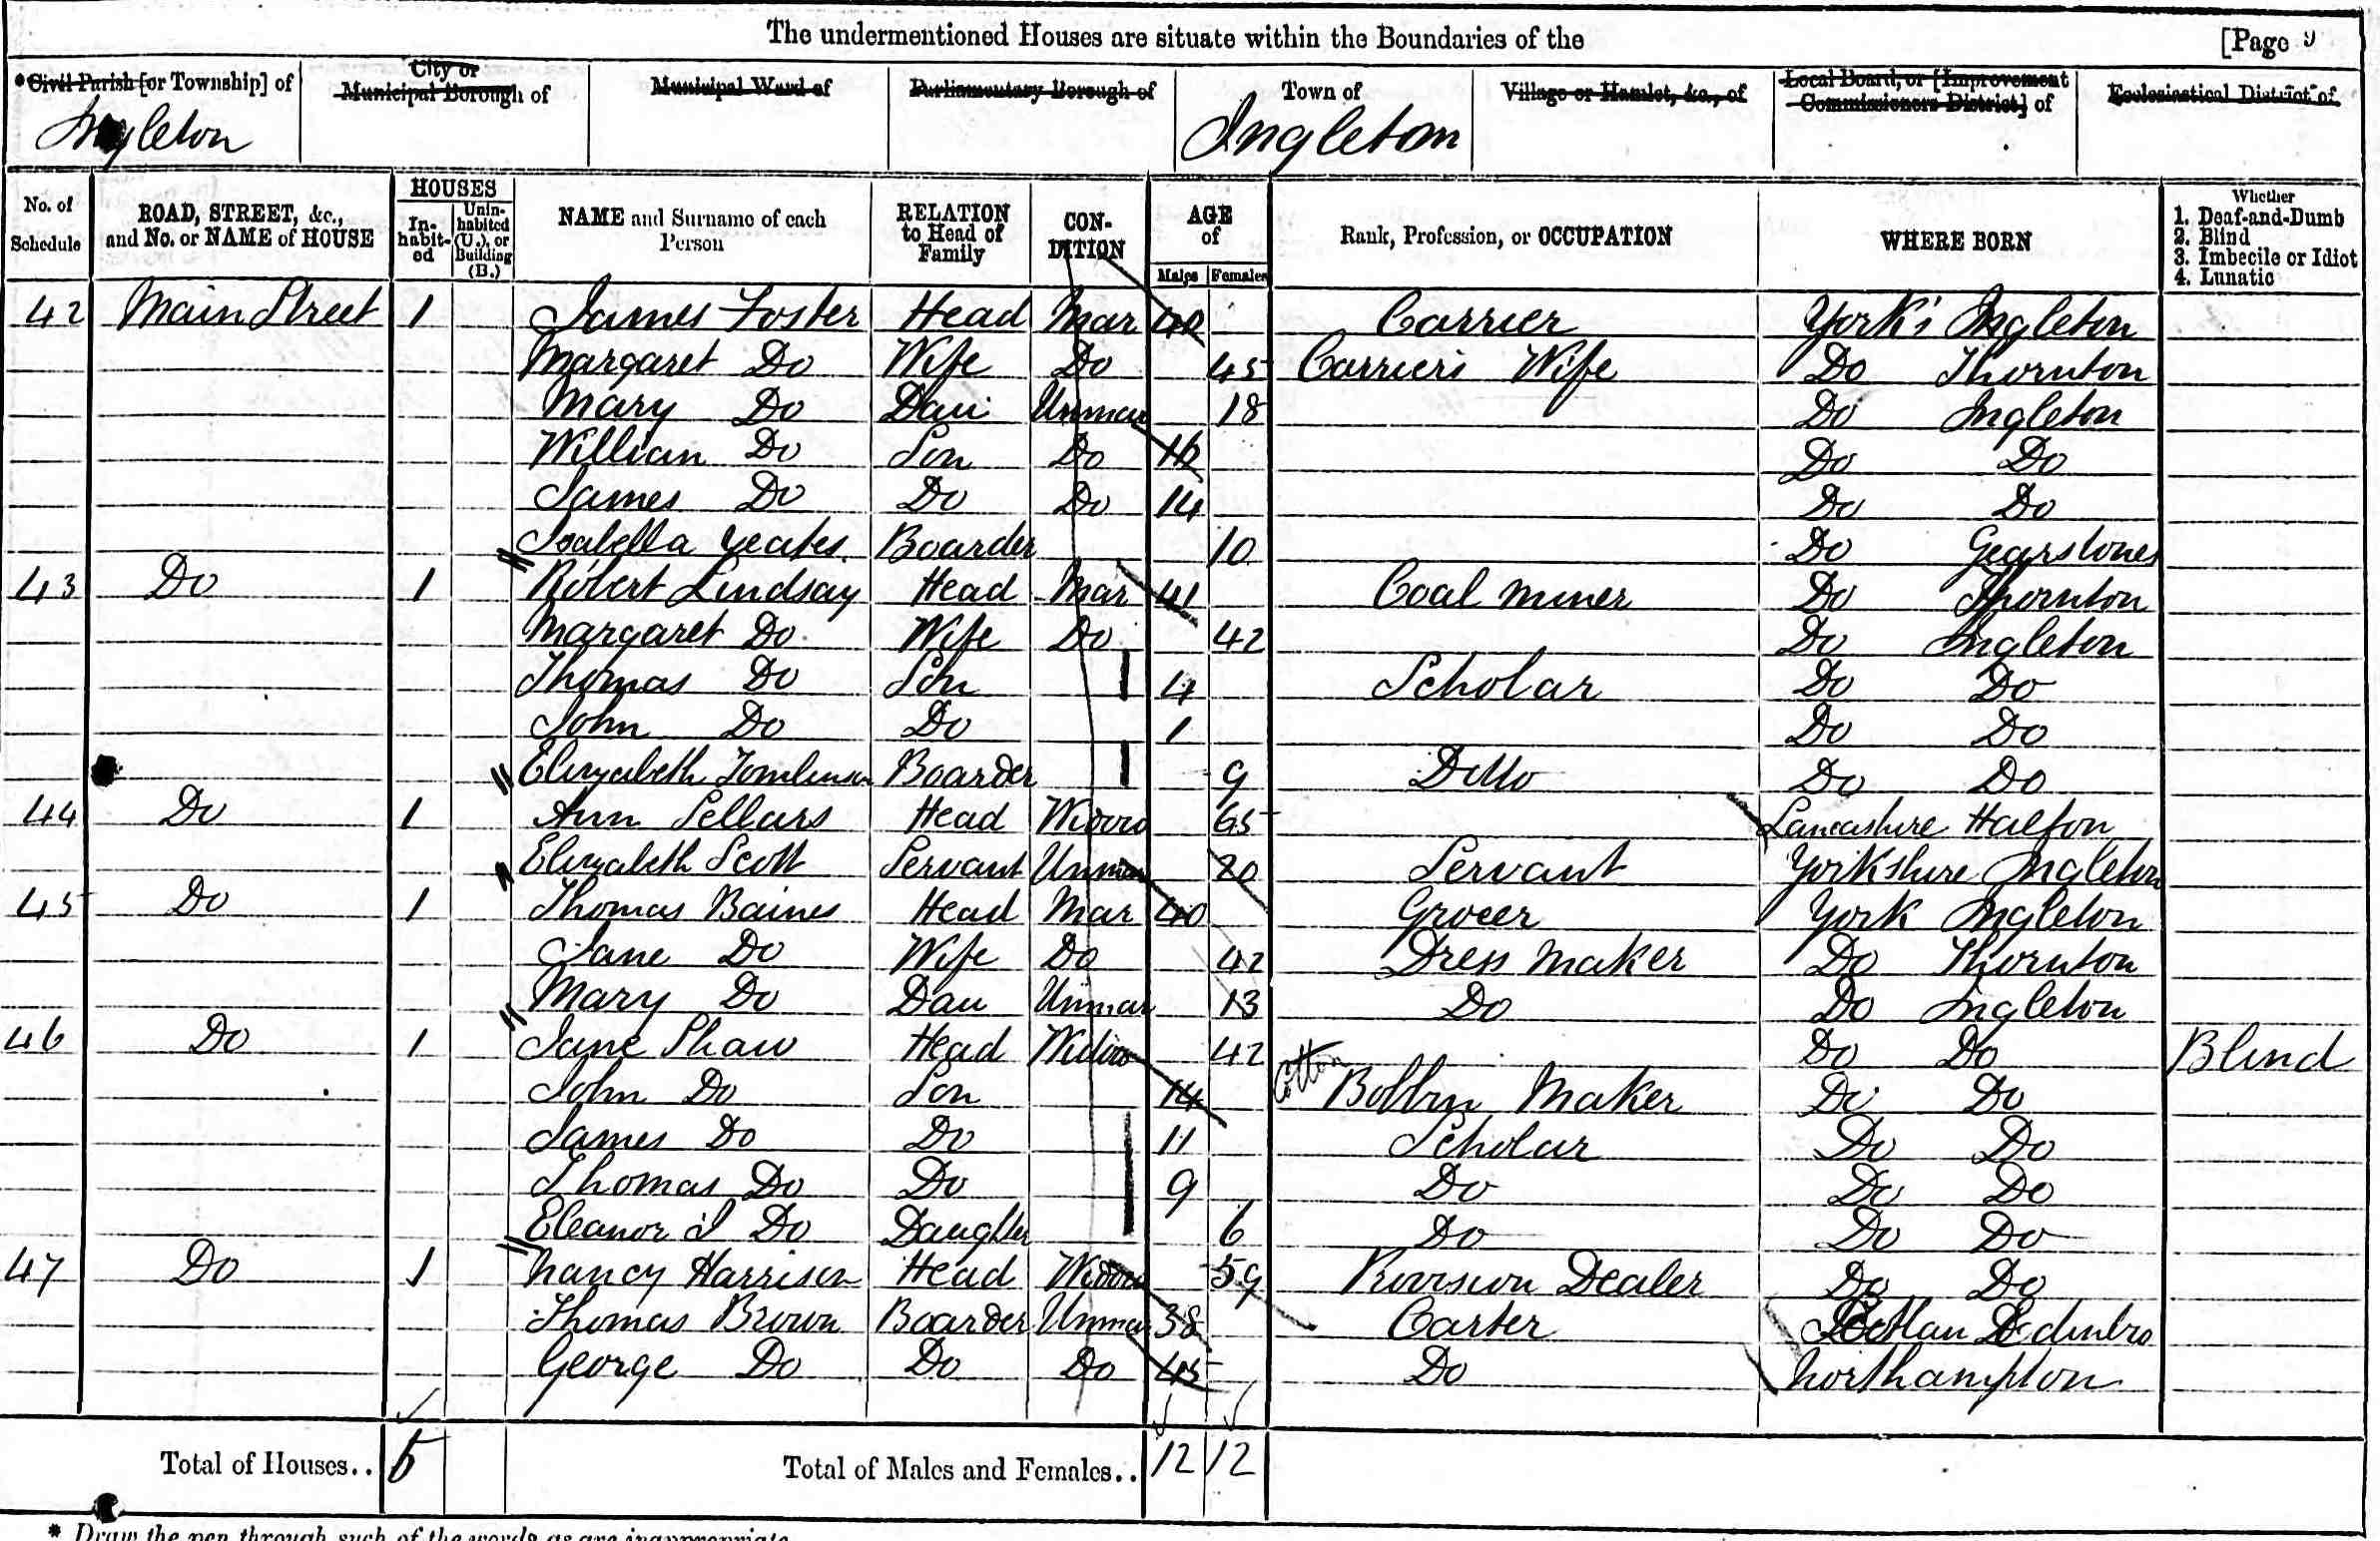 The undermentioned Houses are situate within the Boundaries of the [Page 9
*Civil Parish [or Township] of City or Municipal Borough of Municipal Ward of Parliamentary Borough of Town of Village or Hamlet, &c., of Local Board, or [Improvement Commissioners District] of Ecclesiastical District of
Ingleton Ingleton
No. of Schedule ROAD, STREET, &c., and No. or NAME of HOUSE HOUSES Inhabited Uninhabited (U.), or Building (B.) NAME and Surname of each Person RELATION to Head of Family CONDITION AGE of Males Females Rank, Profession, or OCCUPATION WHERE BORN Whether 1. Deaf-and-Dumb 2. Blind 3. Imbecile or Idiot 4. Lunatic
42 Main Street 1 James Foster Head Mar 40 Carrier York's Ingleton
Margaret Do Wife Do 45 Carriers Wife Do Thornton
Mary Do Dau Unmar 18 Do Ingleton
William Do Son Do 16 Do Do
James Do Do Do 14 Do Do
Isabella Yeates Boarder 10 Do Gearstones
43 Do 1 Robert Lindsay Head Mar 41 Coal Miner Do Thornton
Margaret Do Wife Do 42 Do Ingleton
Thomas Do Son 4 Scholar Do Do
John Do Do 1 Do Do
Elizabeth Tomlinson Boarder 9 Ditto Do Do
44 Do 1 Ann Sellars Head Widow 65 Lancashire Halton
Elizabeth Scott Servant Unmar 20 Servant Yorkshire Ingleton
45 Do 1 Thomas Baines Head Mar 40 Grocer York Ingleton
Jane Do Wife Do 42 Dress Maker Do Thornton
Mary Do Dau Unmar 13 Do Do Ingleton
46 Do 1 Jane Shaw Head Widow 42 Do Do Blind
John Do Son 14 Cotton Bobbin Maker Do Do
James Do Do 11 Scholar Do Do
Thomas Do Do 9 Do Do Do
Eleanor J Do Daughter 6 Do Do Do
47 Do 1 Nancy Harrison Head Widow 59 Provision Dealer Do Do
Thomas Brown Boarder Unmar 38 Carter Edinbro
George Do Do Do 45 Do Northampton
Total of Houses.. 6 Total of Males and Females.. 12 12
* Draw the pen through such of the words as are inappropriate.